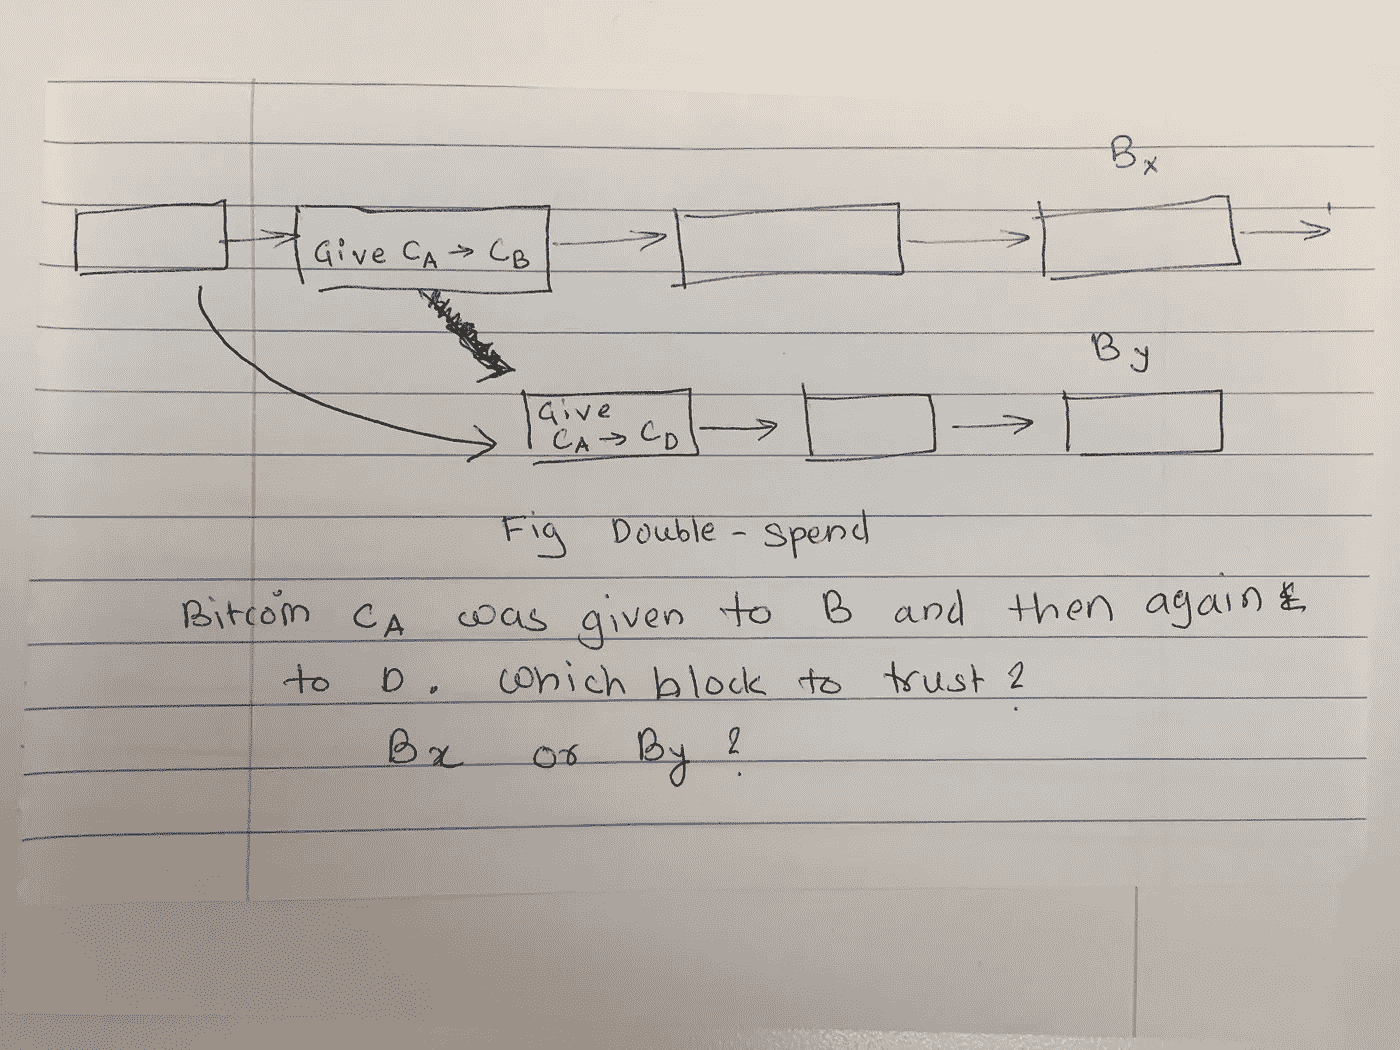 Bx
Give CA → CB
By
Give
CA → CD
Fig Double - spend
Bitcoin CA was given to B and then again
to D. Which block to trust?
Bx or By?